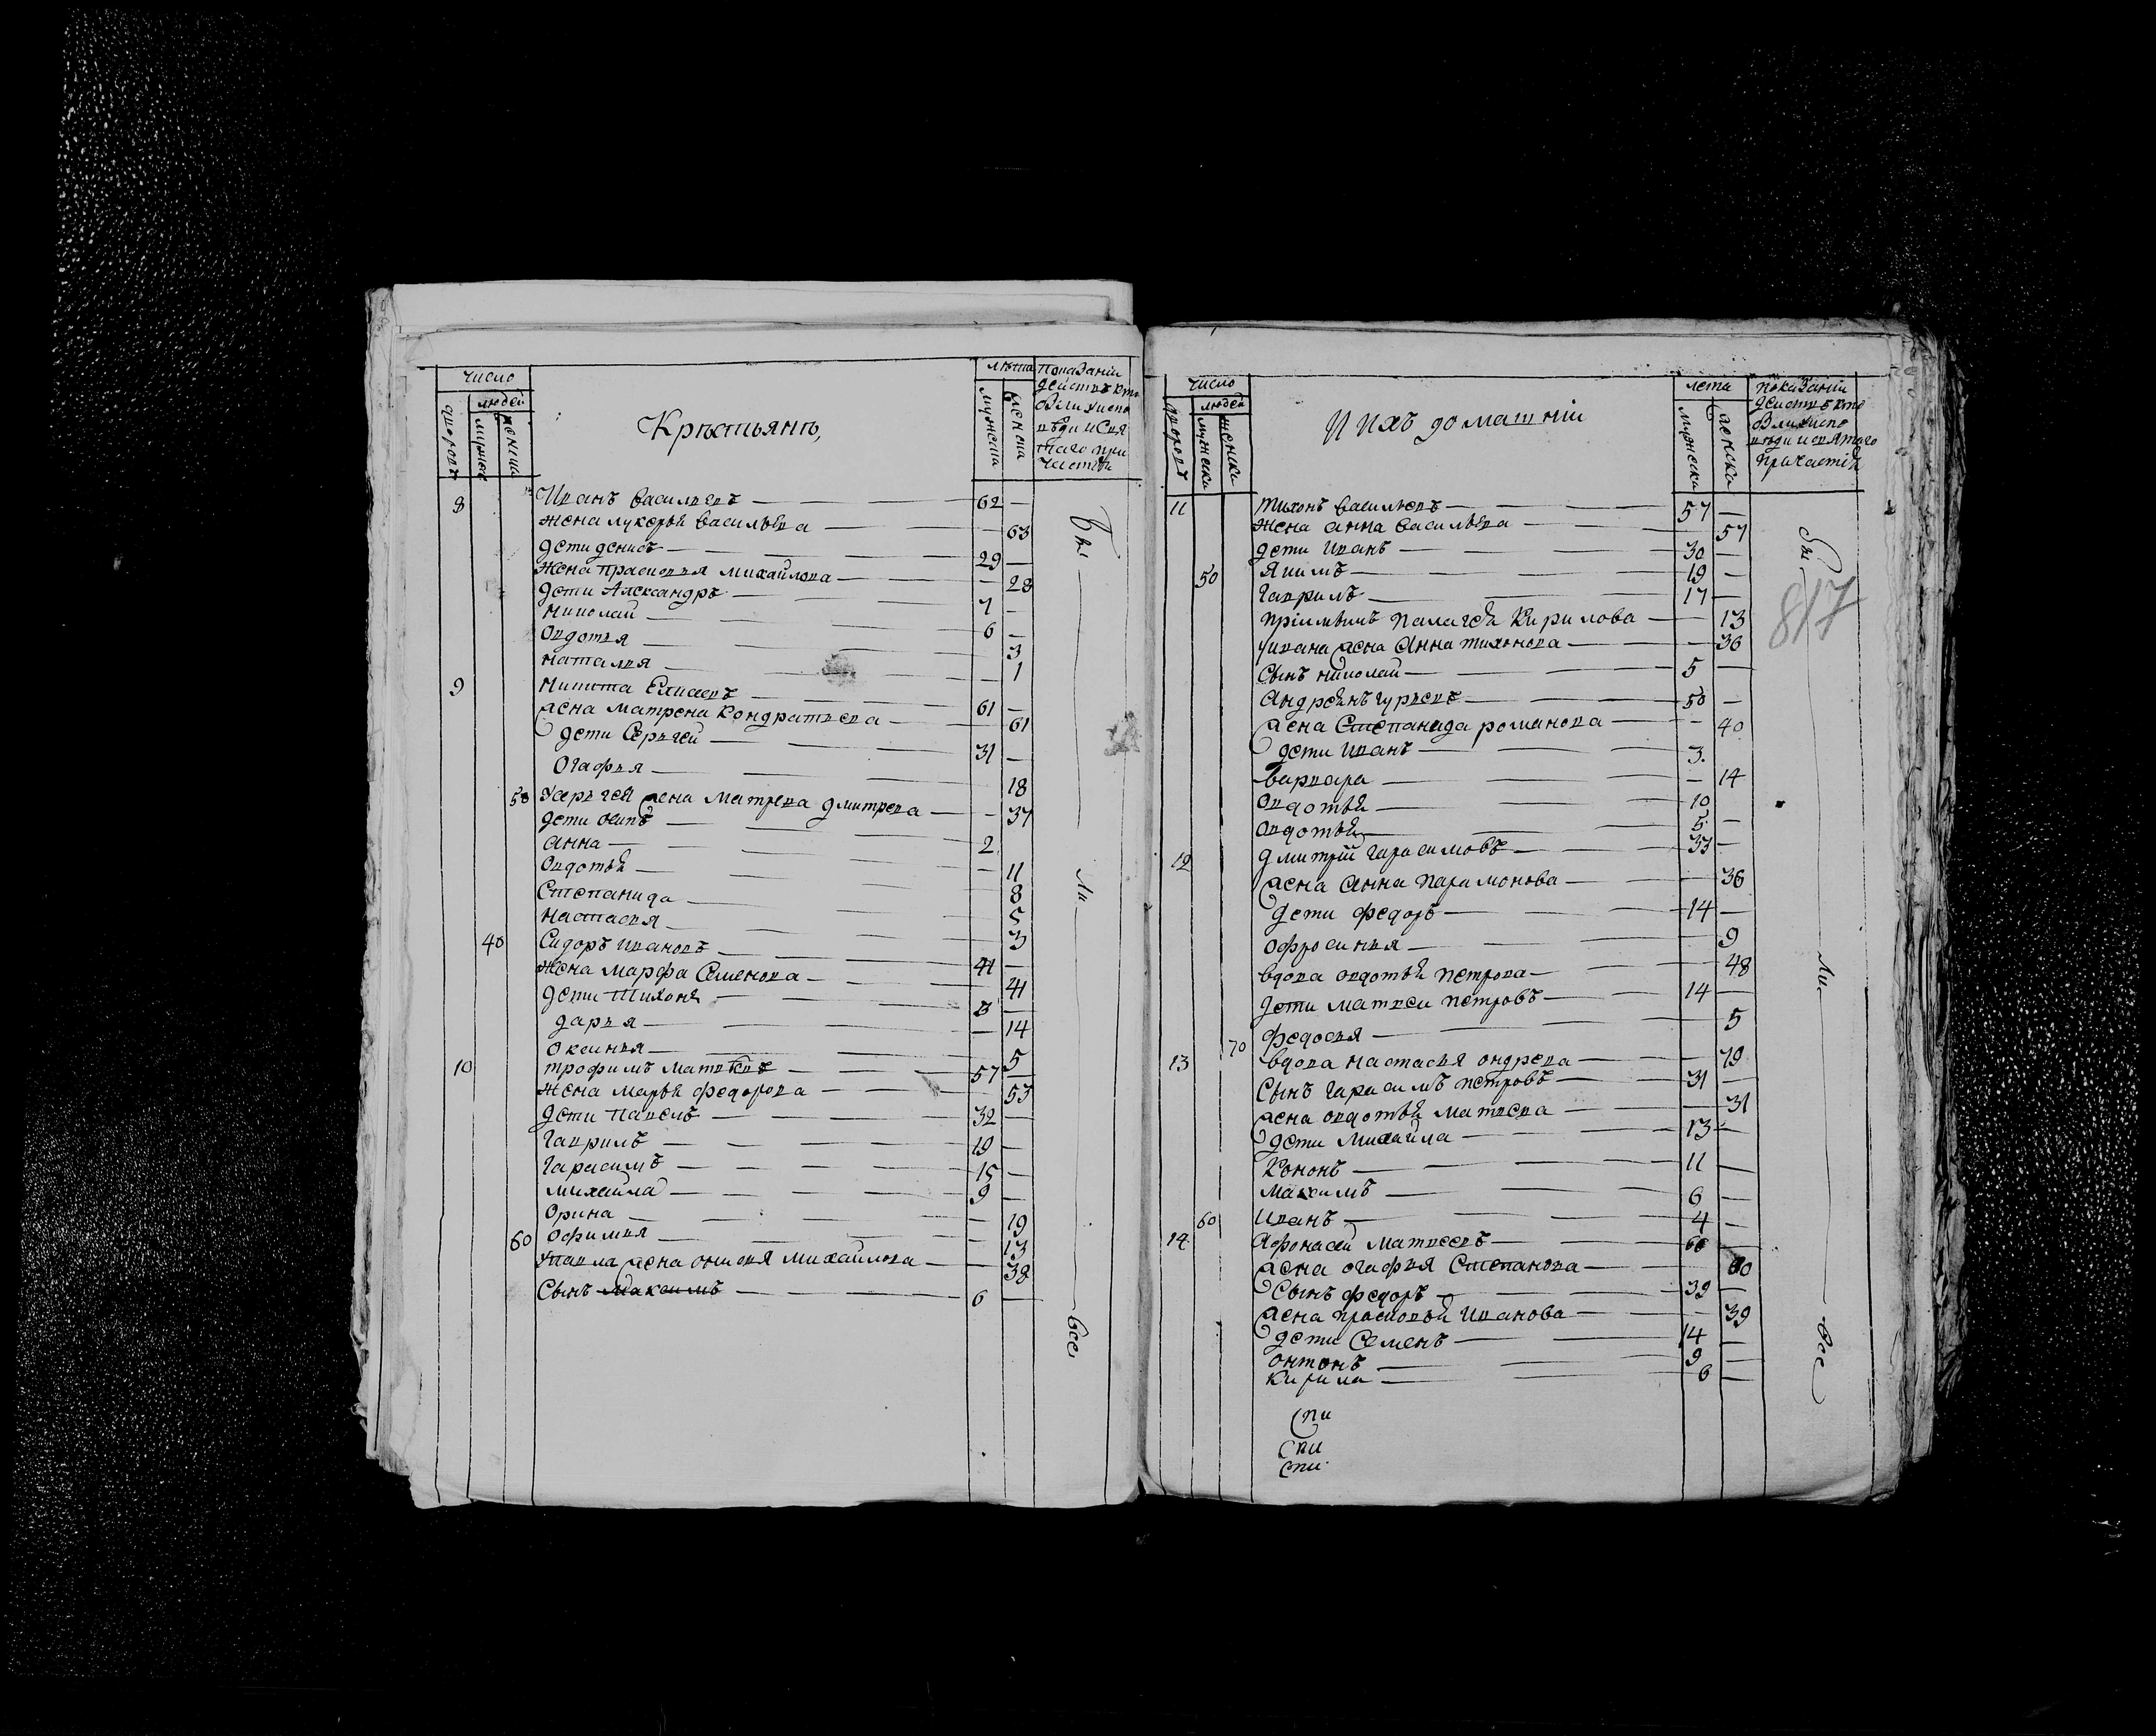 число
людей
дворовъ
мужес
женска
Крестьянъ,
лѣта
мужеска
женска
показаніи
действъ кто
былъ у испо
вѣди и свя
таго при
частія
8 Иванъ васильевъ 62
жена лукерья васильева 63
дети денисъ 29
жена прасковья михайлова 28
дети Александръ 7
николай 6
овдотья 3
наталья 1
9 никита Елисеевъ 61
жена матрена кондратьева 61
дети Сергѣй 31
огафья 18
50 у сергея жена матрена дмитрева 37
дети осипъ 2
анна 11
овдотья 8
степанида 5
настасья 3
40 Сидоръ ивановъ 41
жена марфа Семенова 41
дети Тихонъ 3
дарья 14
оксинья 5
10 трофимъ матвеевъ 57
жена марья федорова 53
дети павелъ 32
гаврилъ 19
гарасимъ 15
михайла 9
орина 19
60 офимья 13
у павла жена онисья михайлова 38
Сынъ максимъ 6
бы ли все
число
людей
дворовъ
мужеска
женска
и ихъ домашніи
лета
мужеска
женска
показаніи
действъ кто
былъ у испо
вѣди и святаго
причастія
11 тихонъ васильевъ 57
жена анна васильева 57
дети иванъ 30
50 якимъ 19
гаврилъ 17
пріимышъ палагея Кирилова 13
у ивана жена анна тихонова 36
Сынъ николай 5
андреянъ гурьевъ 50
жена Степанида романова 40
дети иванъ 3
варвара 14
овдотья 10
овдотья 5
12 дмитрій гарасимовъ 37
жена анна парамонова 38
дети федоръ 14
офросинья 9
вдова овдотья петрова 48
дети матвеи петровъ 14
федосья 5
13 70 вдова настасья ондрева 79
Сынъ гарасимъ петровъ 31
жена овдотья матвева 31
дети михайла 13
Кононъ 11
максимъ 6
60 иванъ 4
14 афонасей матвеевъ 60
жена огафья Степанова 60
Сынъ федоръ 39
жена прасковья иванова 39
дети Семенъ 14
онтонъ 9
кирила 6
бы ли все
817